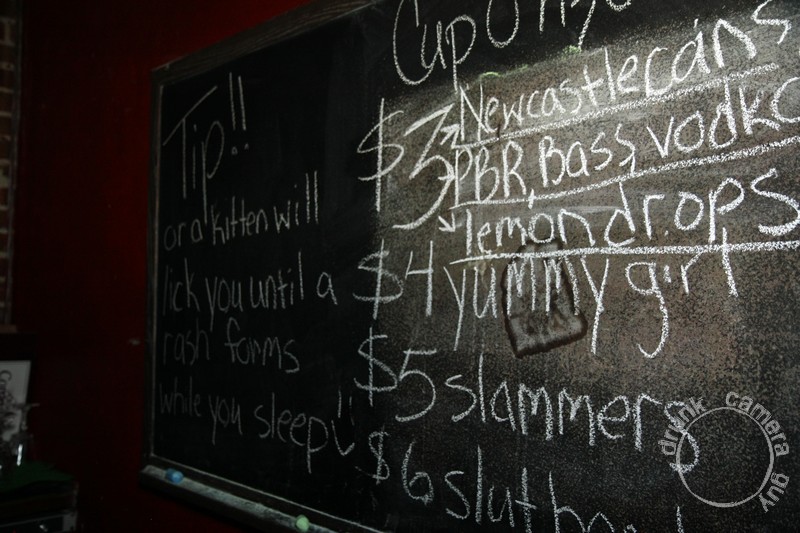 Tip!!
or a kitten will
lick you until a
rash forms
while you sleep!!
Cup O
$3 Newcastle cans
PBR, Bass, vodka
lemon drops
$4 yummy girl
$5 slammers
$6 slut
drunk camera guy